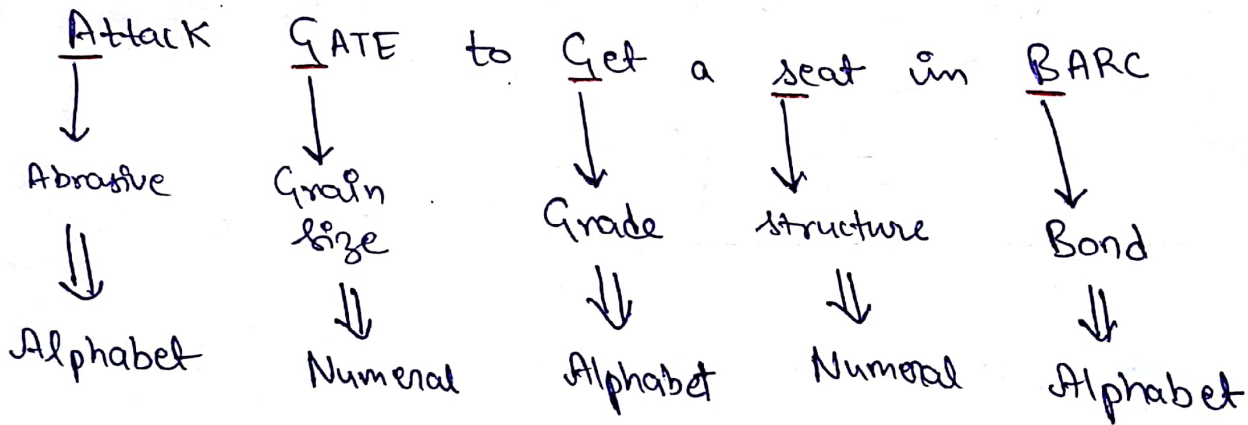 Attack GATE to Get a seat in BARC
Abrasive Grain size Grade structure Bond
Alphabet Numeral Alphabet Numeral Alphabet